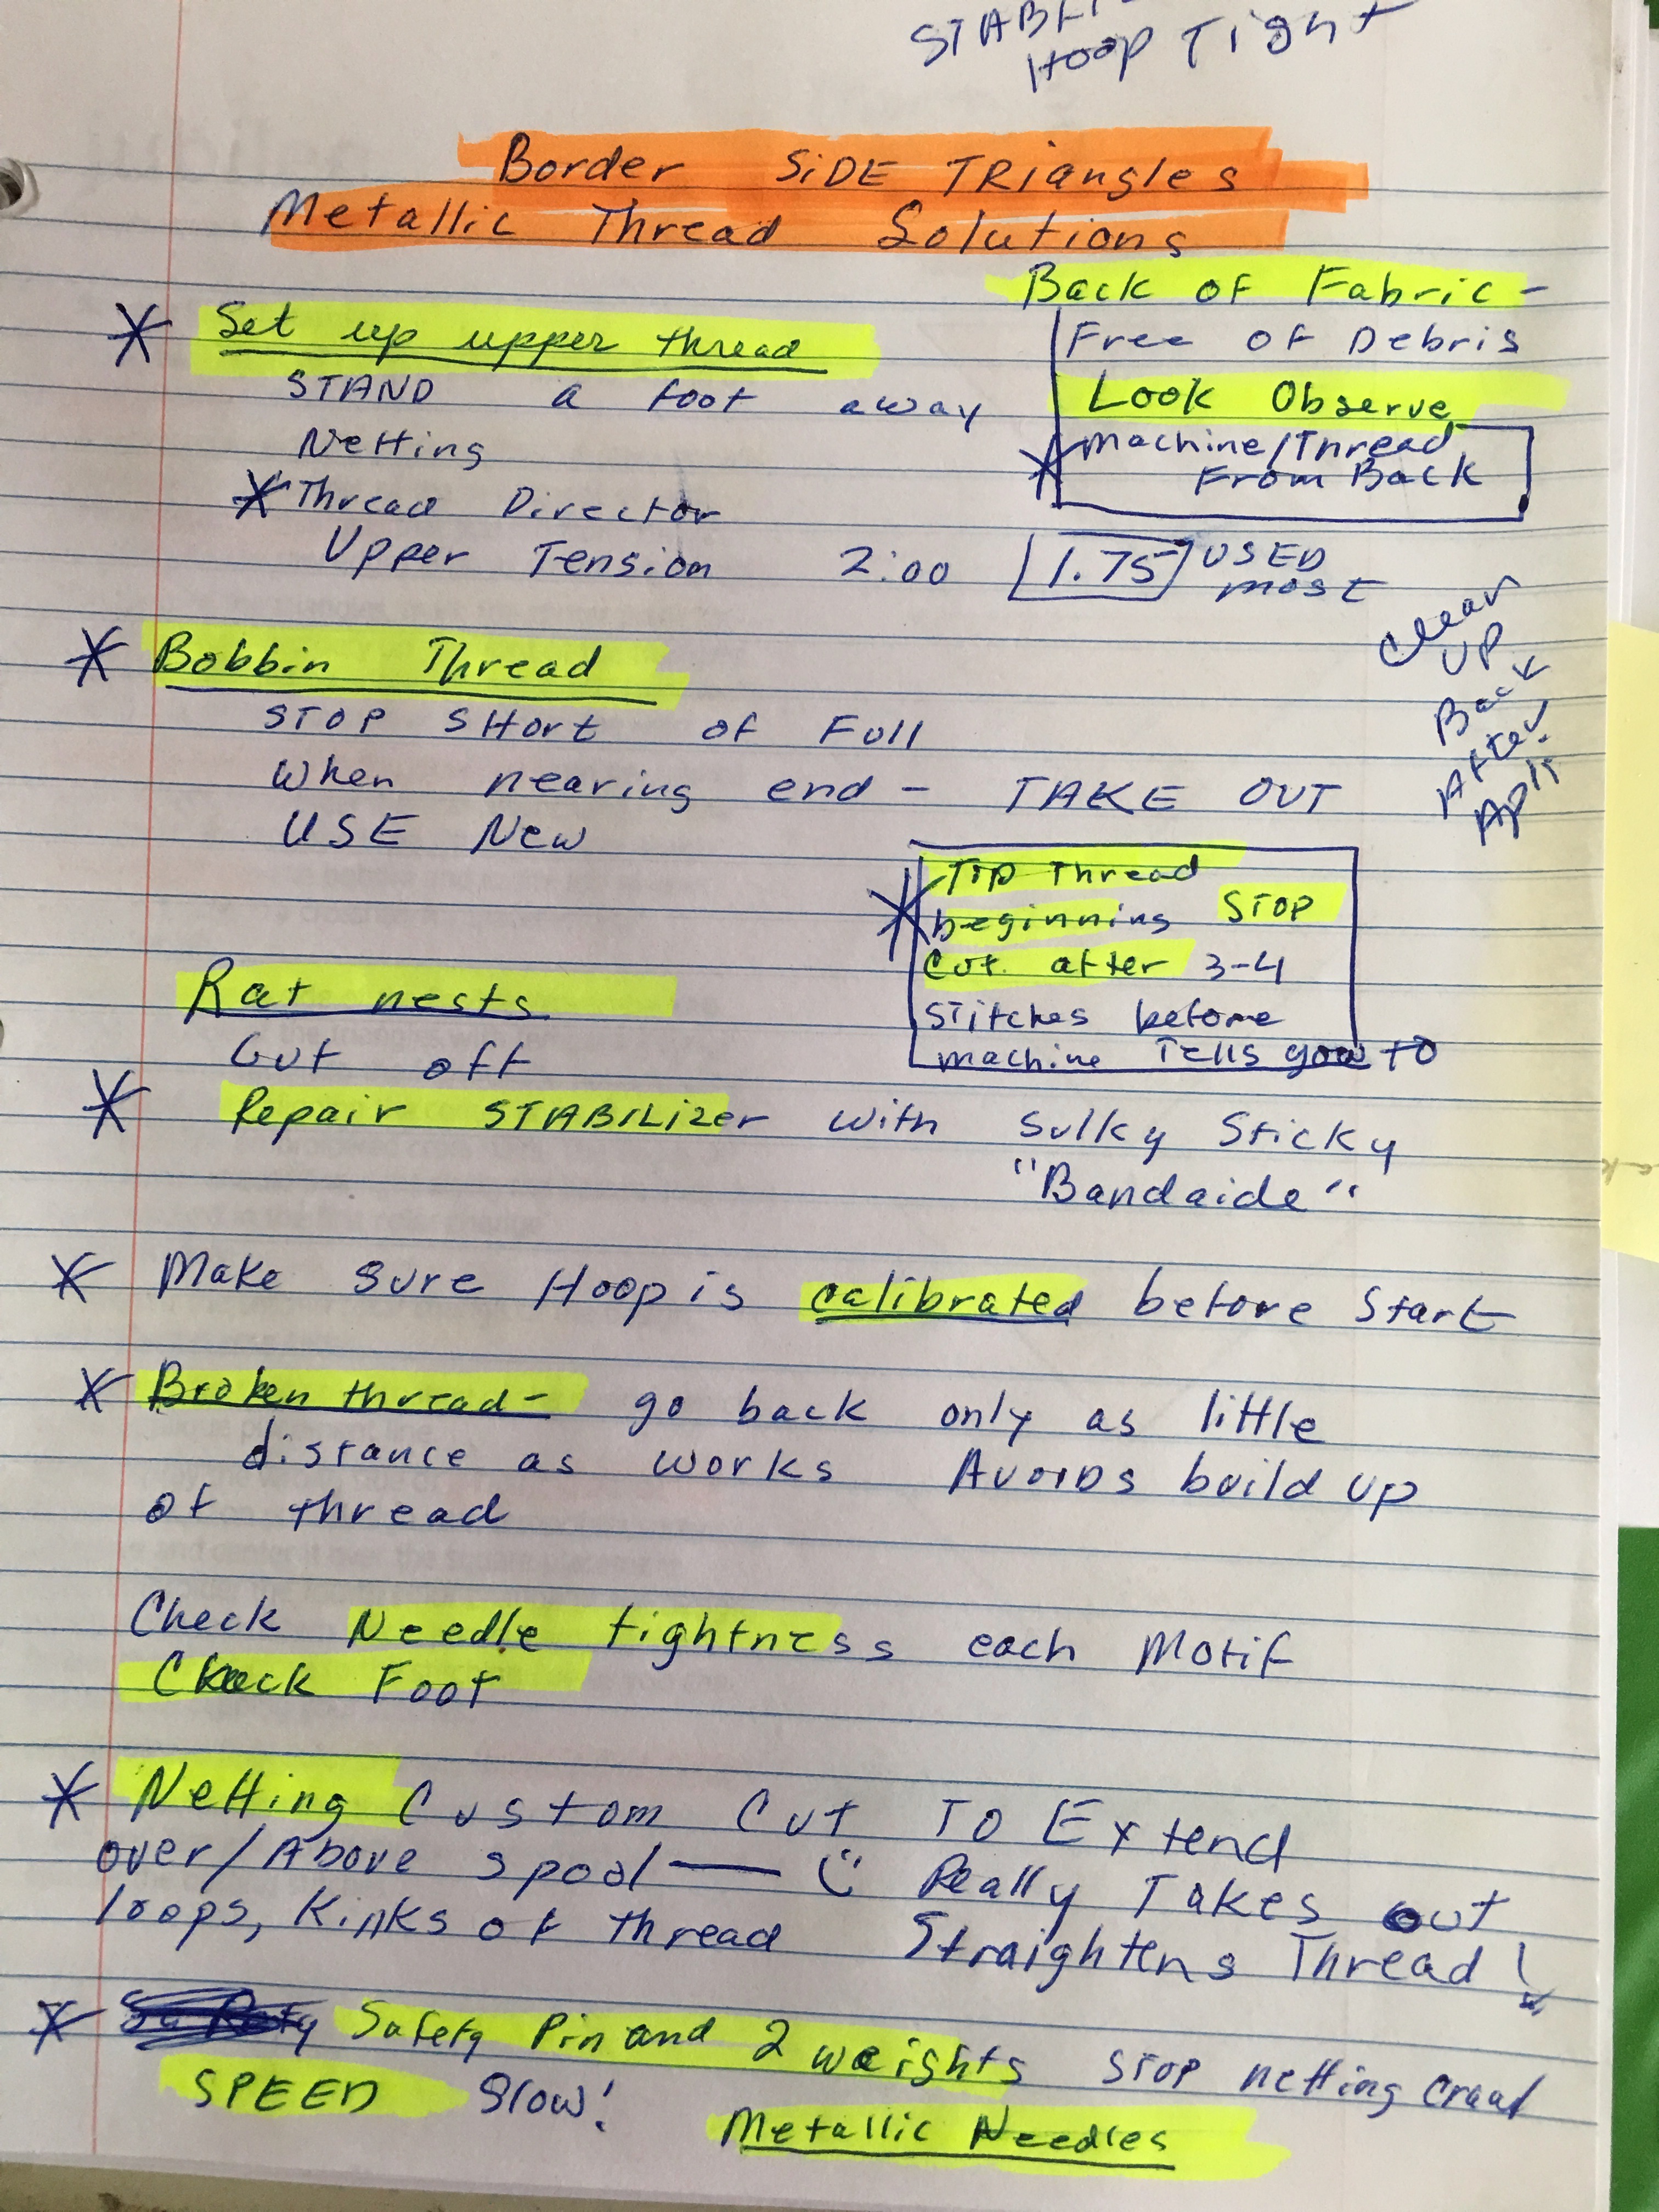 Hoop Tight
Border SiDE TRiangles
Metallic Thread Solutions
Back of Fabric -
Free of Debris
Look Observe
* Machine/Thread
From Back
* Set up upper thread
STAND a foot away
Netting
* Thread Director
Upper Tension 2:00 1.75 USED
most
Clean
UP
Back
After
* Bobbin Thread
STOP SHort of Full
When nearing end - TAKE OUT
USE New
* Tip Thread
beginning STOP
Cut after 3-4
Stitches before
machine Tells you to
Rat nests
Cut off
* Repair STABILizer with Sulky Sticky
"Bandaide"
* Make Sure Hoop is calibrated before Start
* Broken thread - go back only as little
distance as works Avoids build up
of thread
Check Needle tightness each Motif
Check Foot
* Netting Custom Cut To Extend
over/Above spool — Really Takes out
loops, Kinks of thread Straightens Thread!
* Safety Pin and 2 weights STOP netting crawl
SPEED Slow!
Metallic Needles